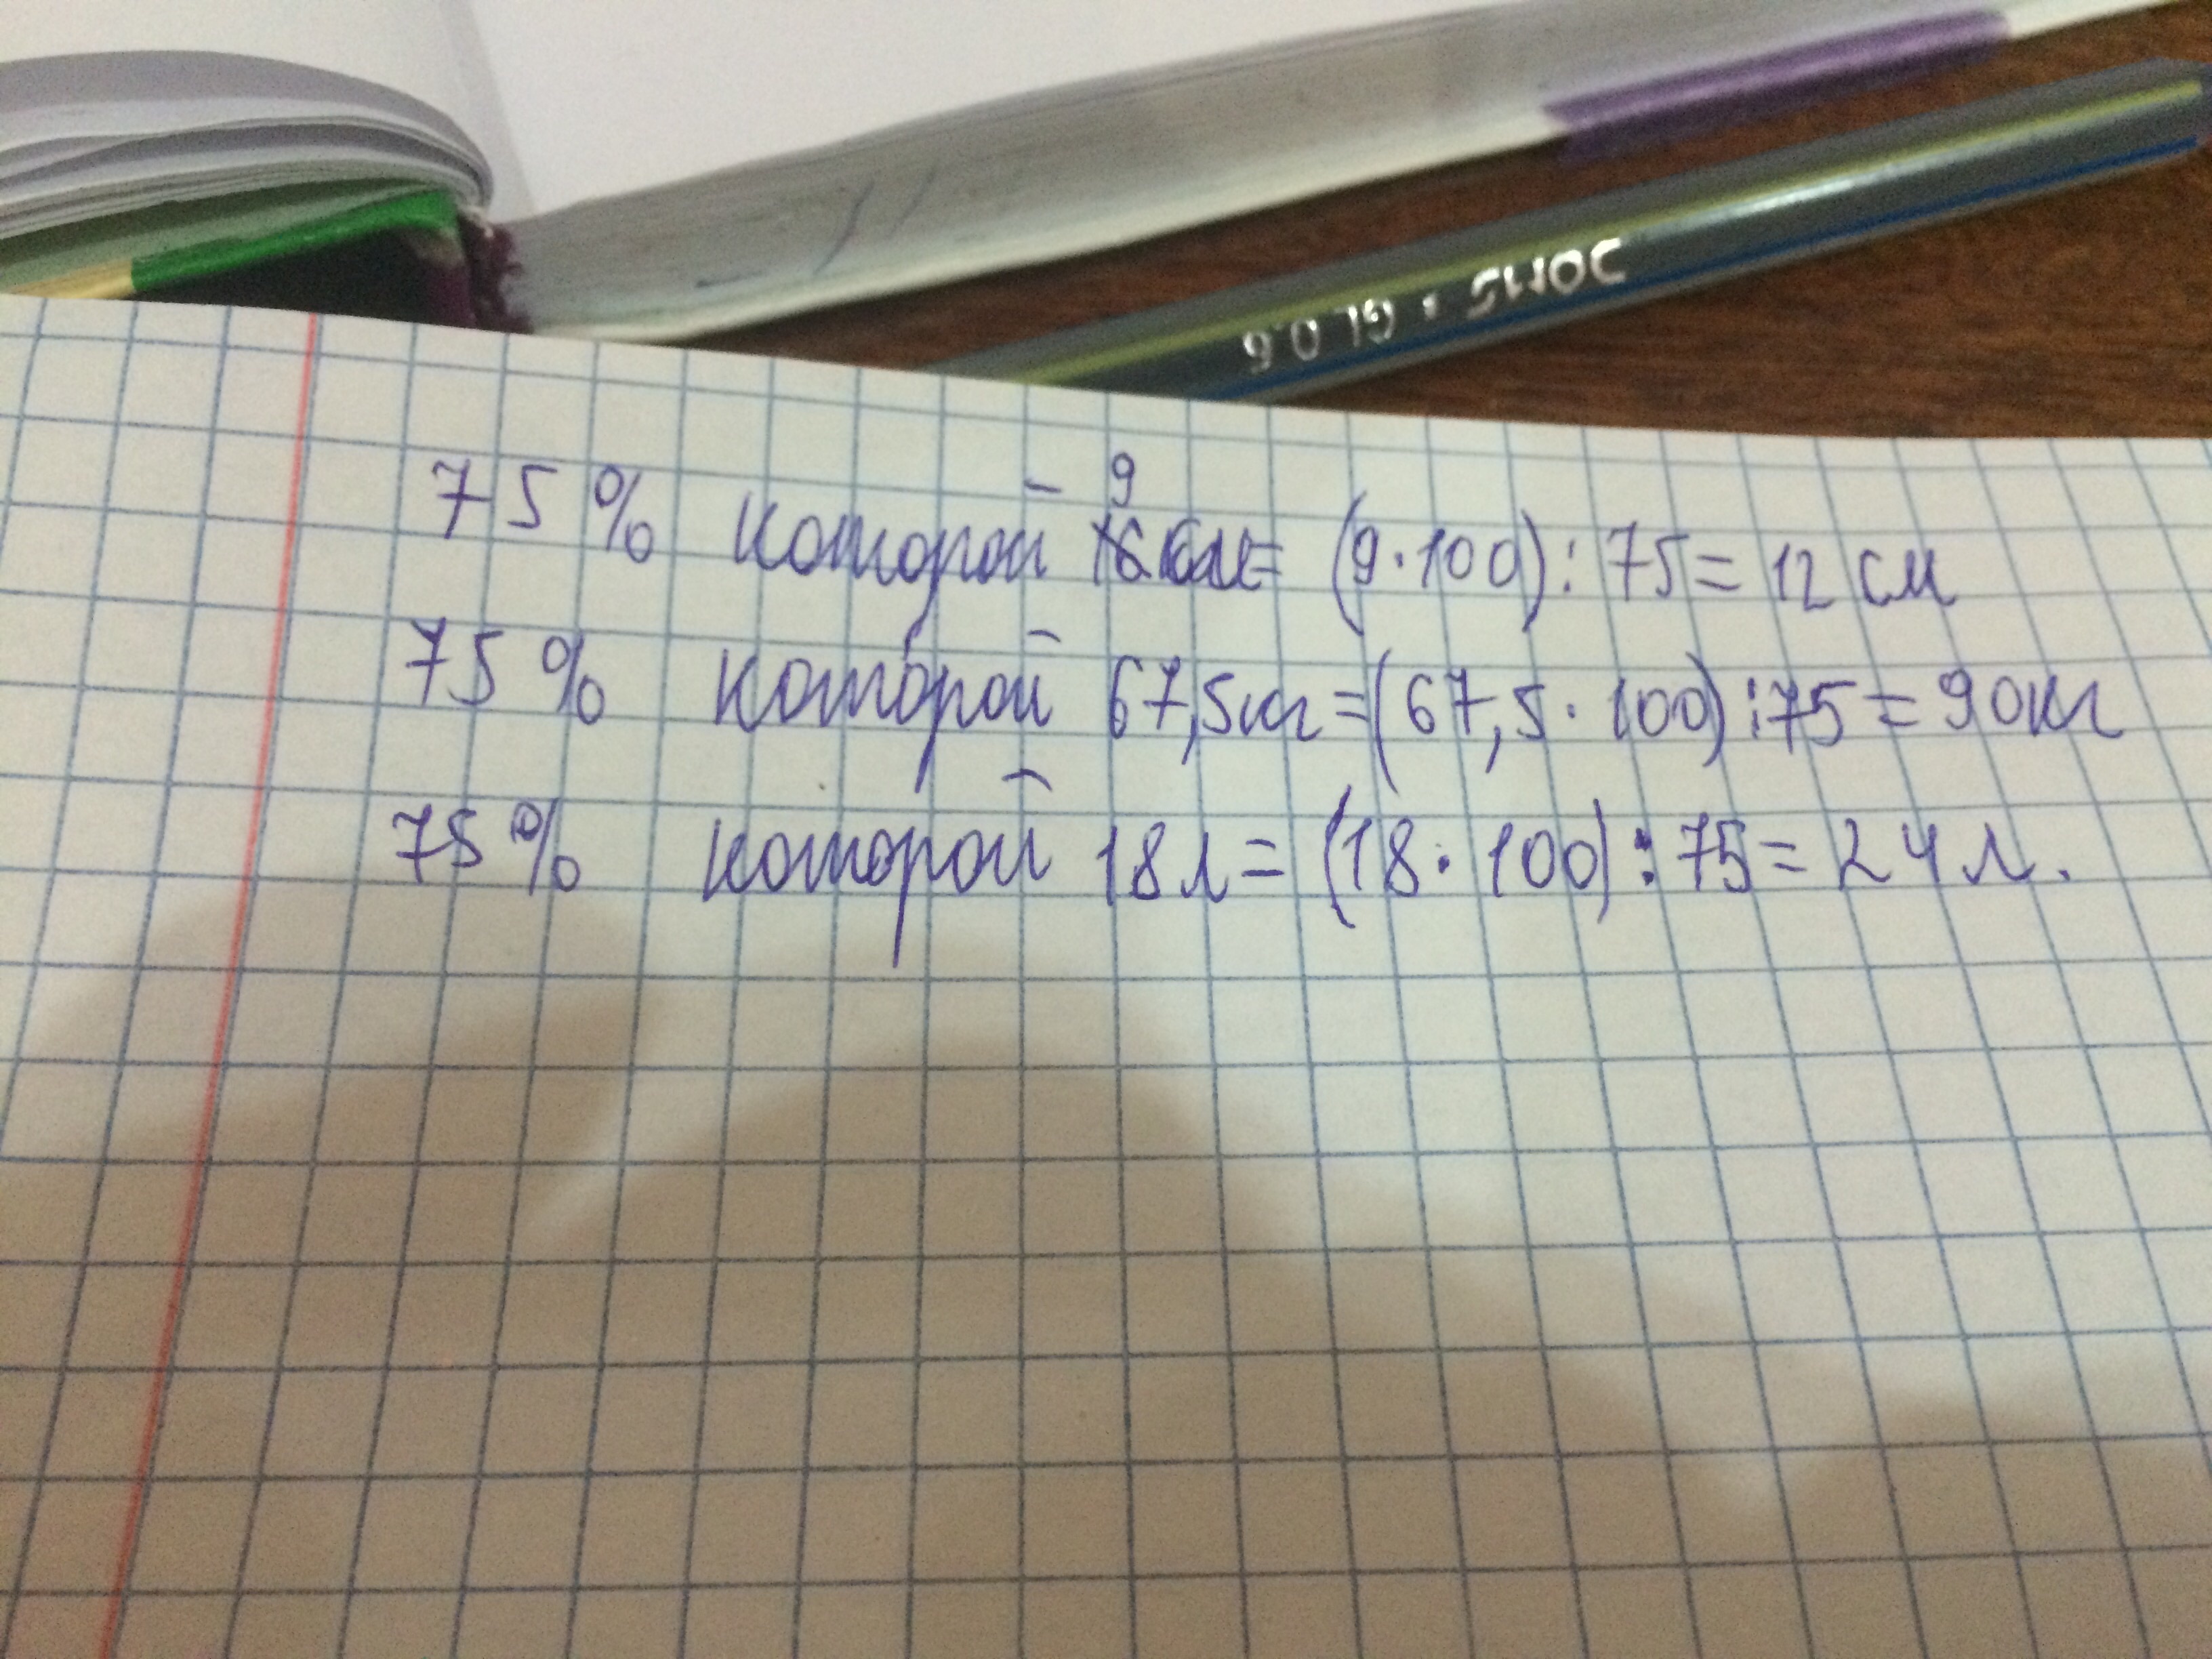 DOMS • GL 0.6
75% которой 9 см = (9·100):75 = 12 см
75% которой 67,5кг=(67,5·100):75=90кг
75% которой 18л=(18·100):75=24л.